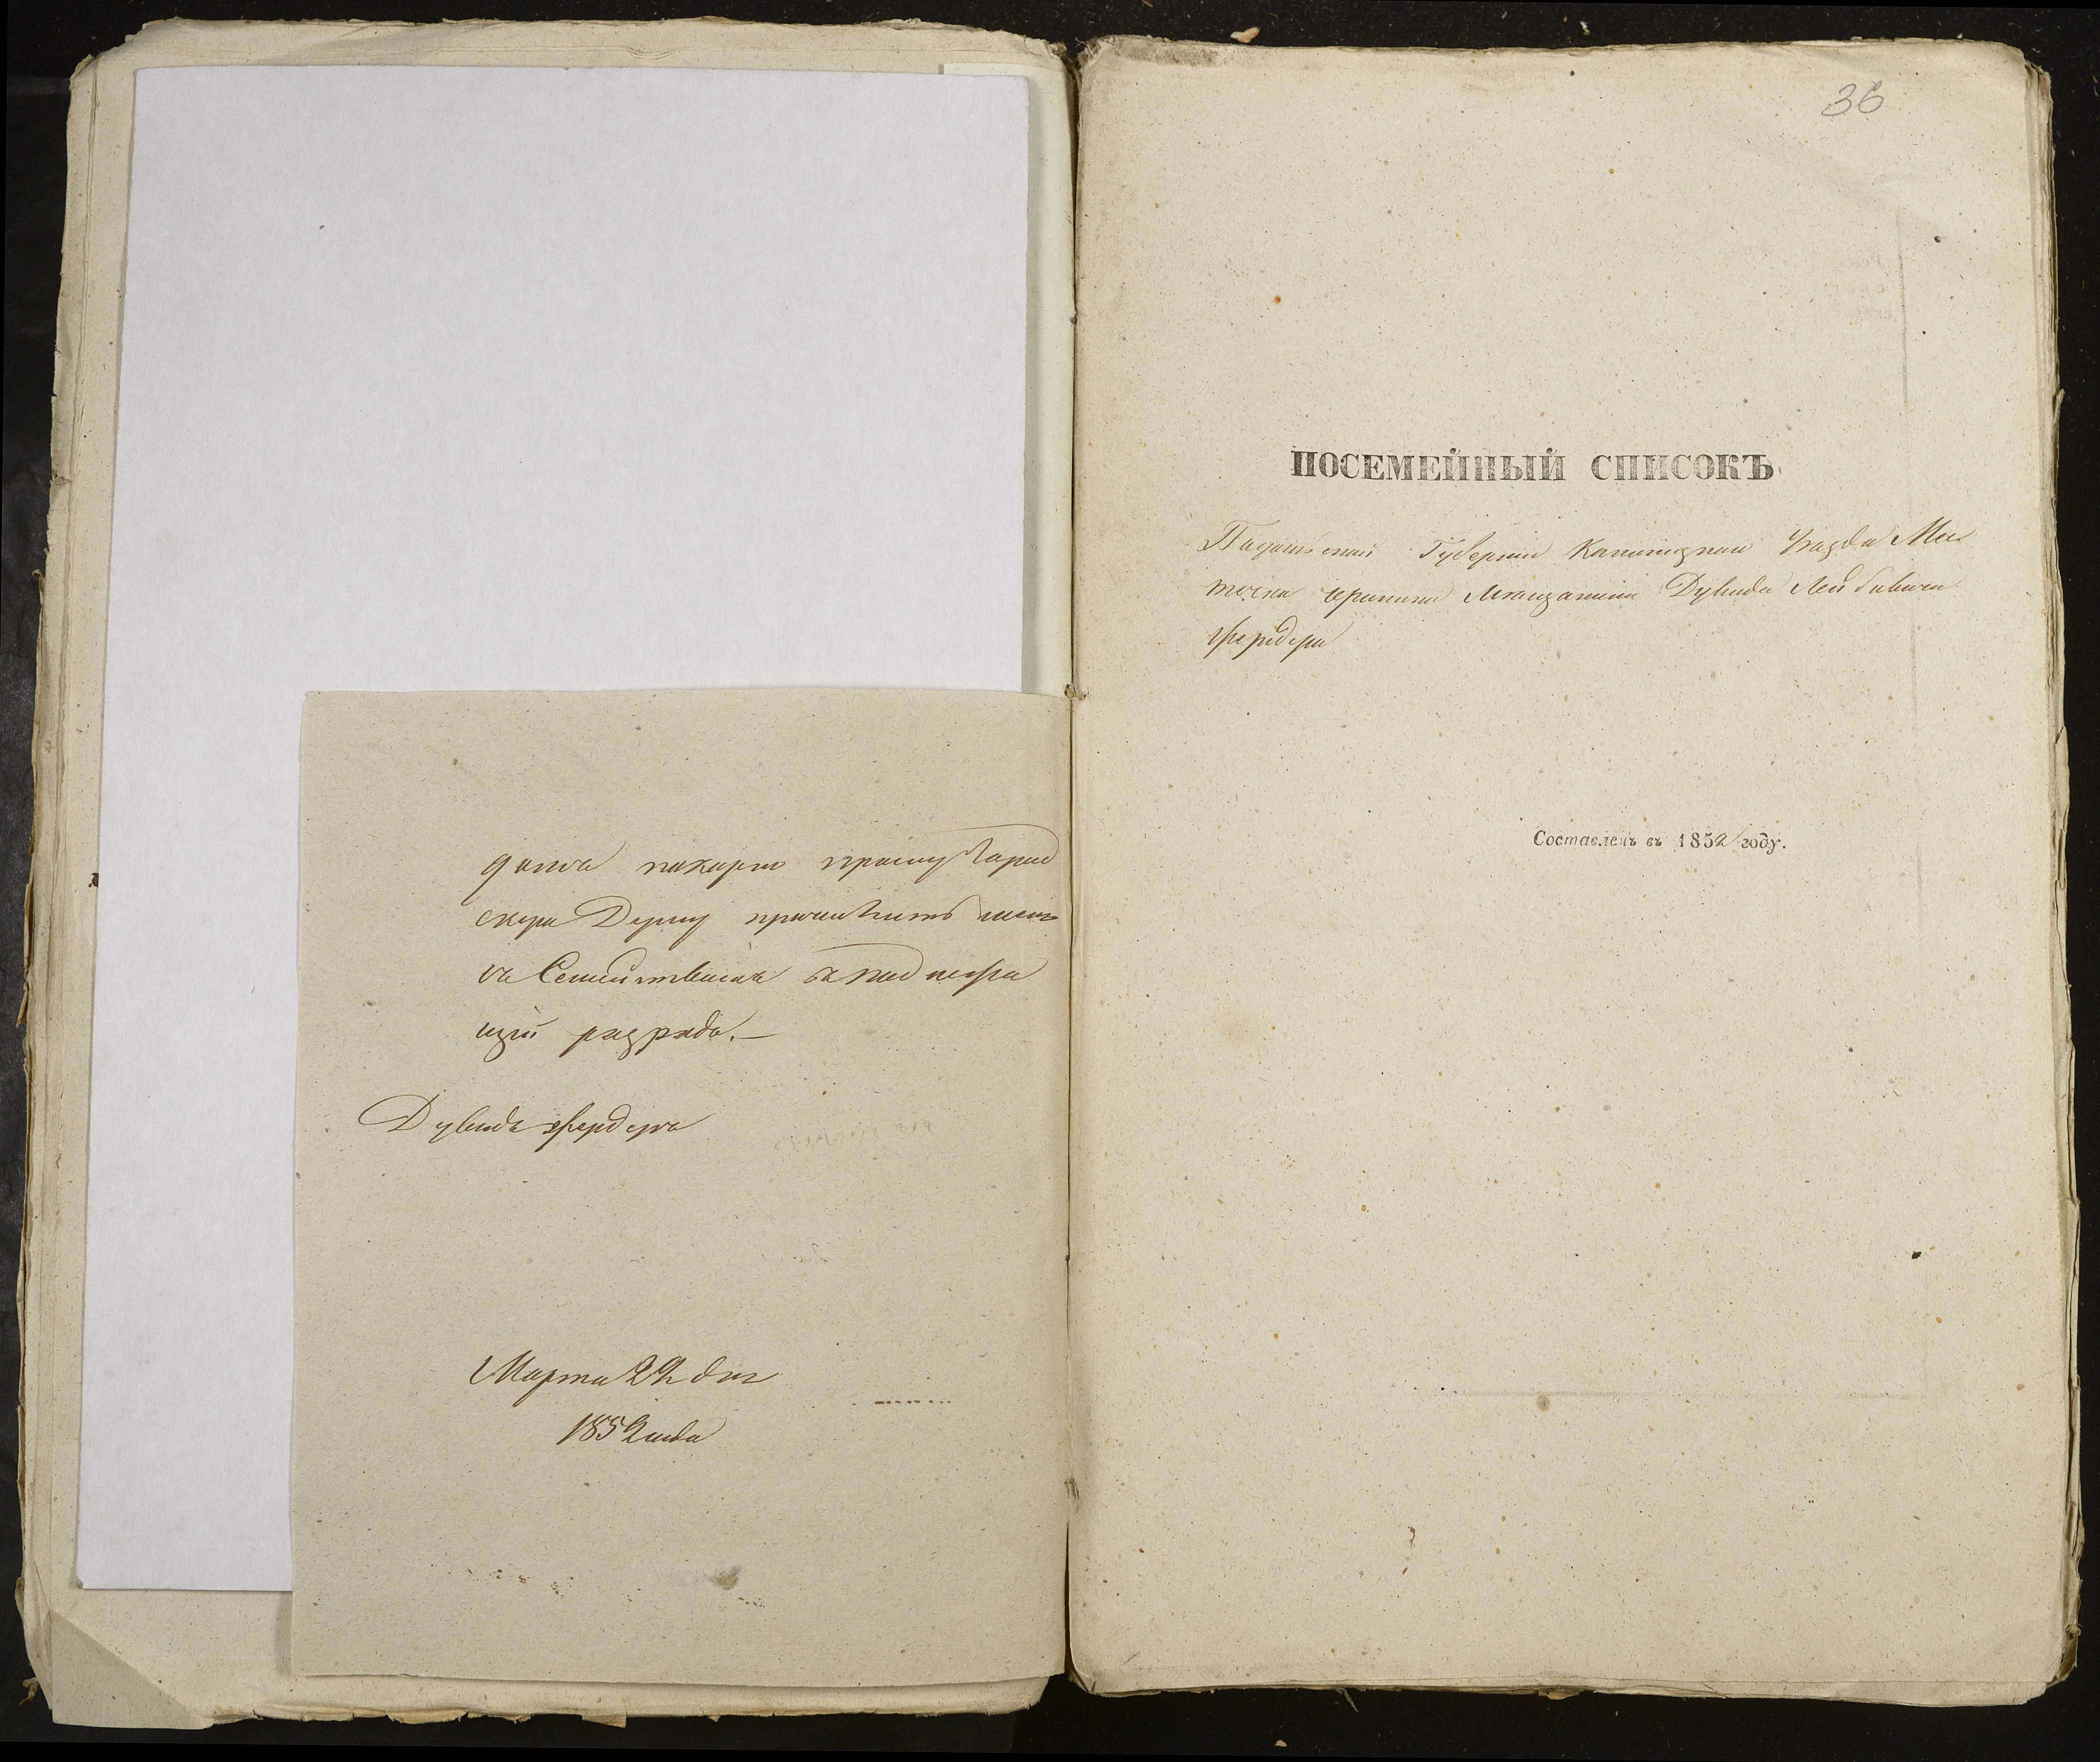 покорно прошу Город
скую Думу причислить меня
съ Семействомъ въ
разрядъ.—
Дувидъ Фердеръ
Марта 22 дня
1852 года
36
ПОСЕМЕЙНЫЙ СПИСОКЪ
Подольской Губернии Уезда Мес
течка Мещанина Дувида Лейбовича
Фердера
Составленъ въ 1852 году.